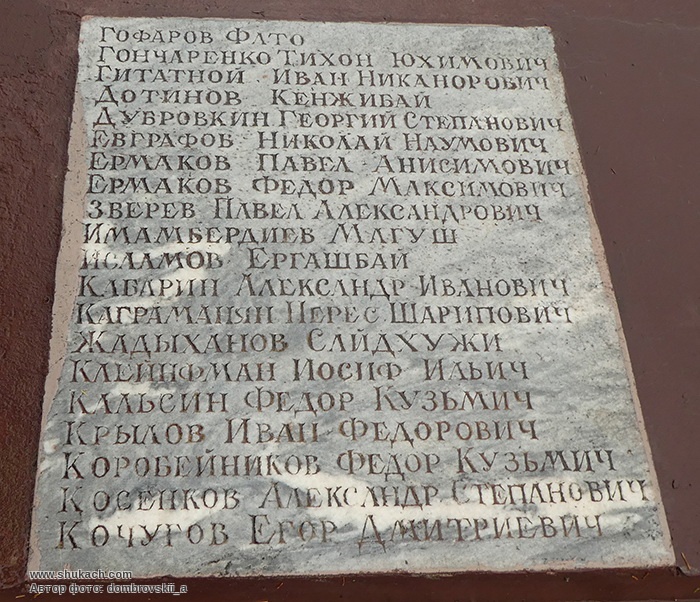 ГОФАРОВ ФАТО
ГОНЧАРЕНКО ТИХОН ЮХИМОВИЧ
ГИТАТНОЙ ИВАН НИКАНОРОВИЧ
ДОТИНОВ КЕНЖИБАЙ
ДУБРОВКИН ГЕОРГИЙ СТЕПАНОВИЧ
ЕВГРАФОБ НИКОЛАЙ НАУМОВИЧ
ЕРМАКОВ ПАВЕЛ АНИСИМОВИЧ
ЕРМАКОВ ФЕДОР МАКСИМОВИЧ
ЗВЕРЕВ ПАВЕЛ АЛЕКСАНДРОВИЧ
ИМАМБЕРДИЕВ МАГУШ
ИСЛАМОВ ЕРГАШБАЙ
КАБАРИН АЛЕКСАНДР ИВАНОВИЧ
КАГРАМАНЯН НЕРЕС ШАРИПОВИЧ
ЖАДЫХАНОВ САЙДХУЖИ
КЛЕЙНФМАН ИОСИФ ИЛЬИЧ
КАЛЬСИН ФЕДОР КУЗЬМИЧ
КРЫЛОВ ИВАН ФЕДОРОВИЧ
КОРОБЕЙНИКОВ ФЕДОР КУЗЬМИЧ
КОСЕНКОВ АЛЕКСАНДР СТЕПАНОВИЧ
КОЧУГОВ ЕГОР ДМИТРИЕВИЧ
www.shukach.com
Автор фото: dombrovskii_a